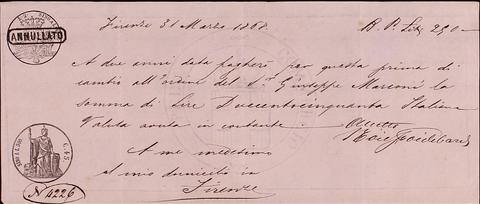 ANNULLATO
Firenze 31 Marzo 1868. B. P. Lit. 250 =
A due anni data pagherò per questa prima di
cambio all'ordine del S.r Giuseppe Marconi la
somma di Lire Duecentocinquanta Italiane
Valuta avuta in contante.
C. 45
A me medesimo
al mio domicilio in
Firenze
N 4226